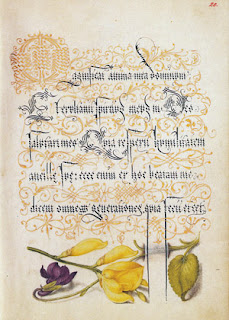 20.
Magnificat anima mea dominum
Et exultavit spiritus meus in Deo
salutari meo Quia respexit humilitatem
ancille sue: ecce enim ex hoc beatam me
dicent omnes generationes, quia fecit